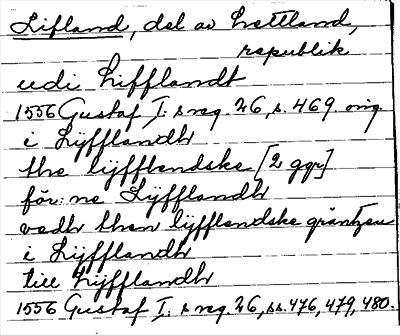 Lifland, del av Lettland,
republik
udi Lifflandt
1556 Gustaf I:s reg. 26, s. 469. orig.
i Lÿfflandh
the lÿfflendske [2 ggr]
för:ne Lÿfflandh
vedh then lÿfflendske gräntzen
i Lÿfflandh
till Lÿfflandh
1556 Gustaf I:s reg. 26, ss. 476, 479, 480.